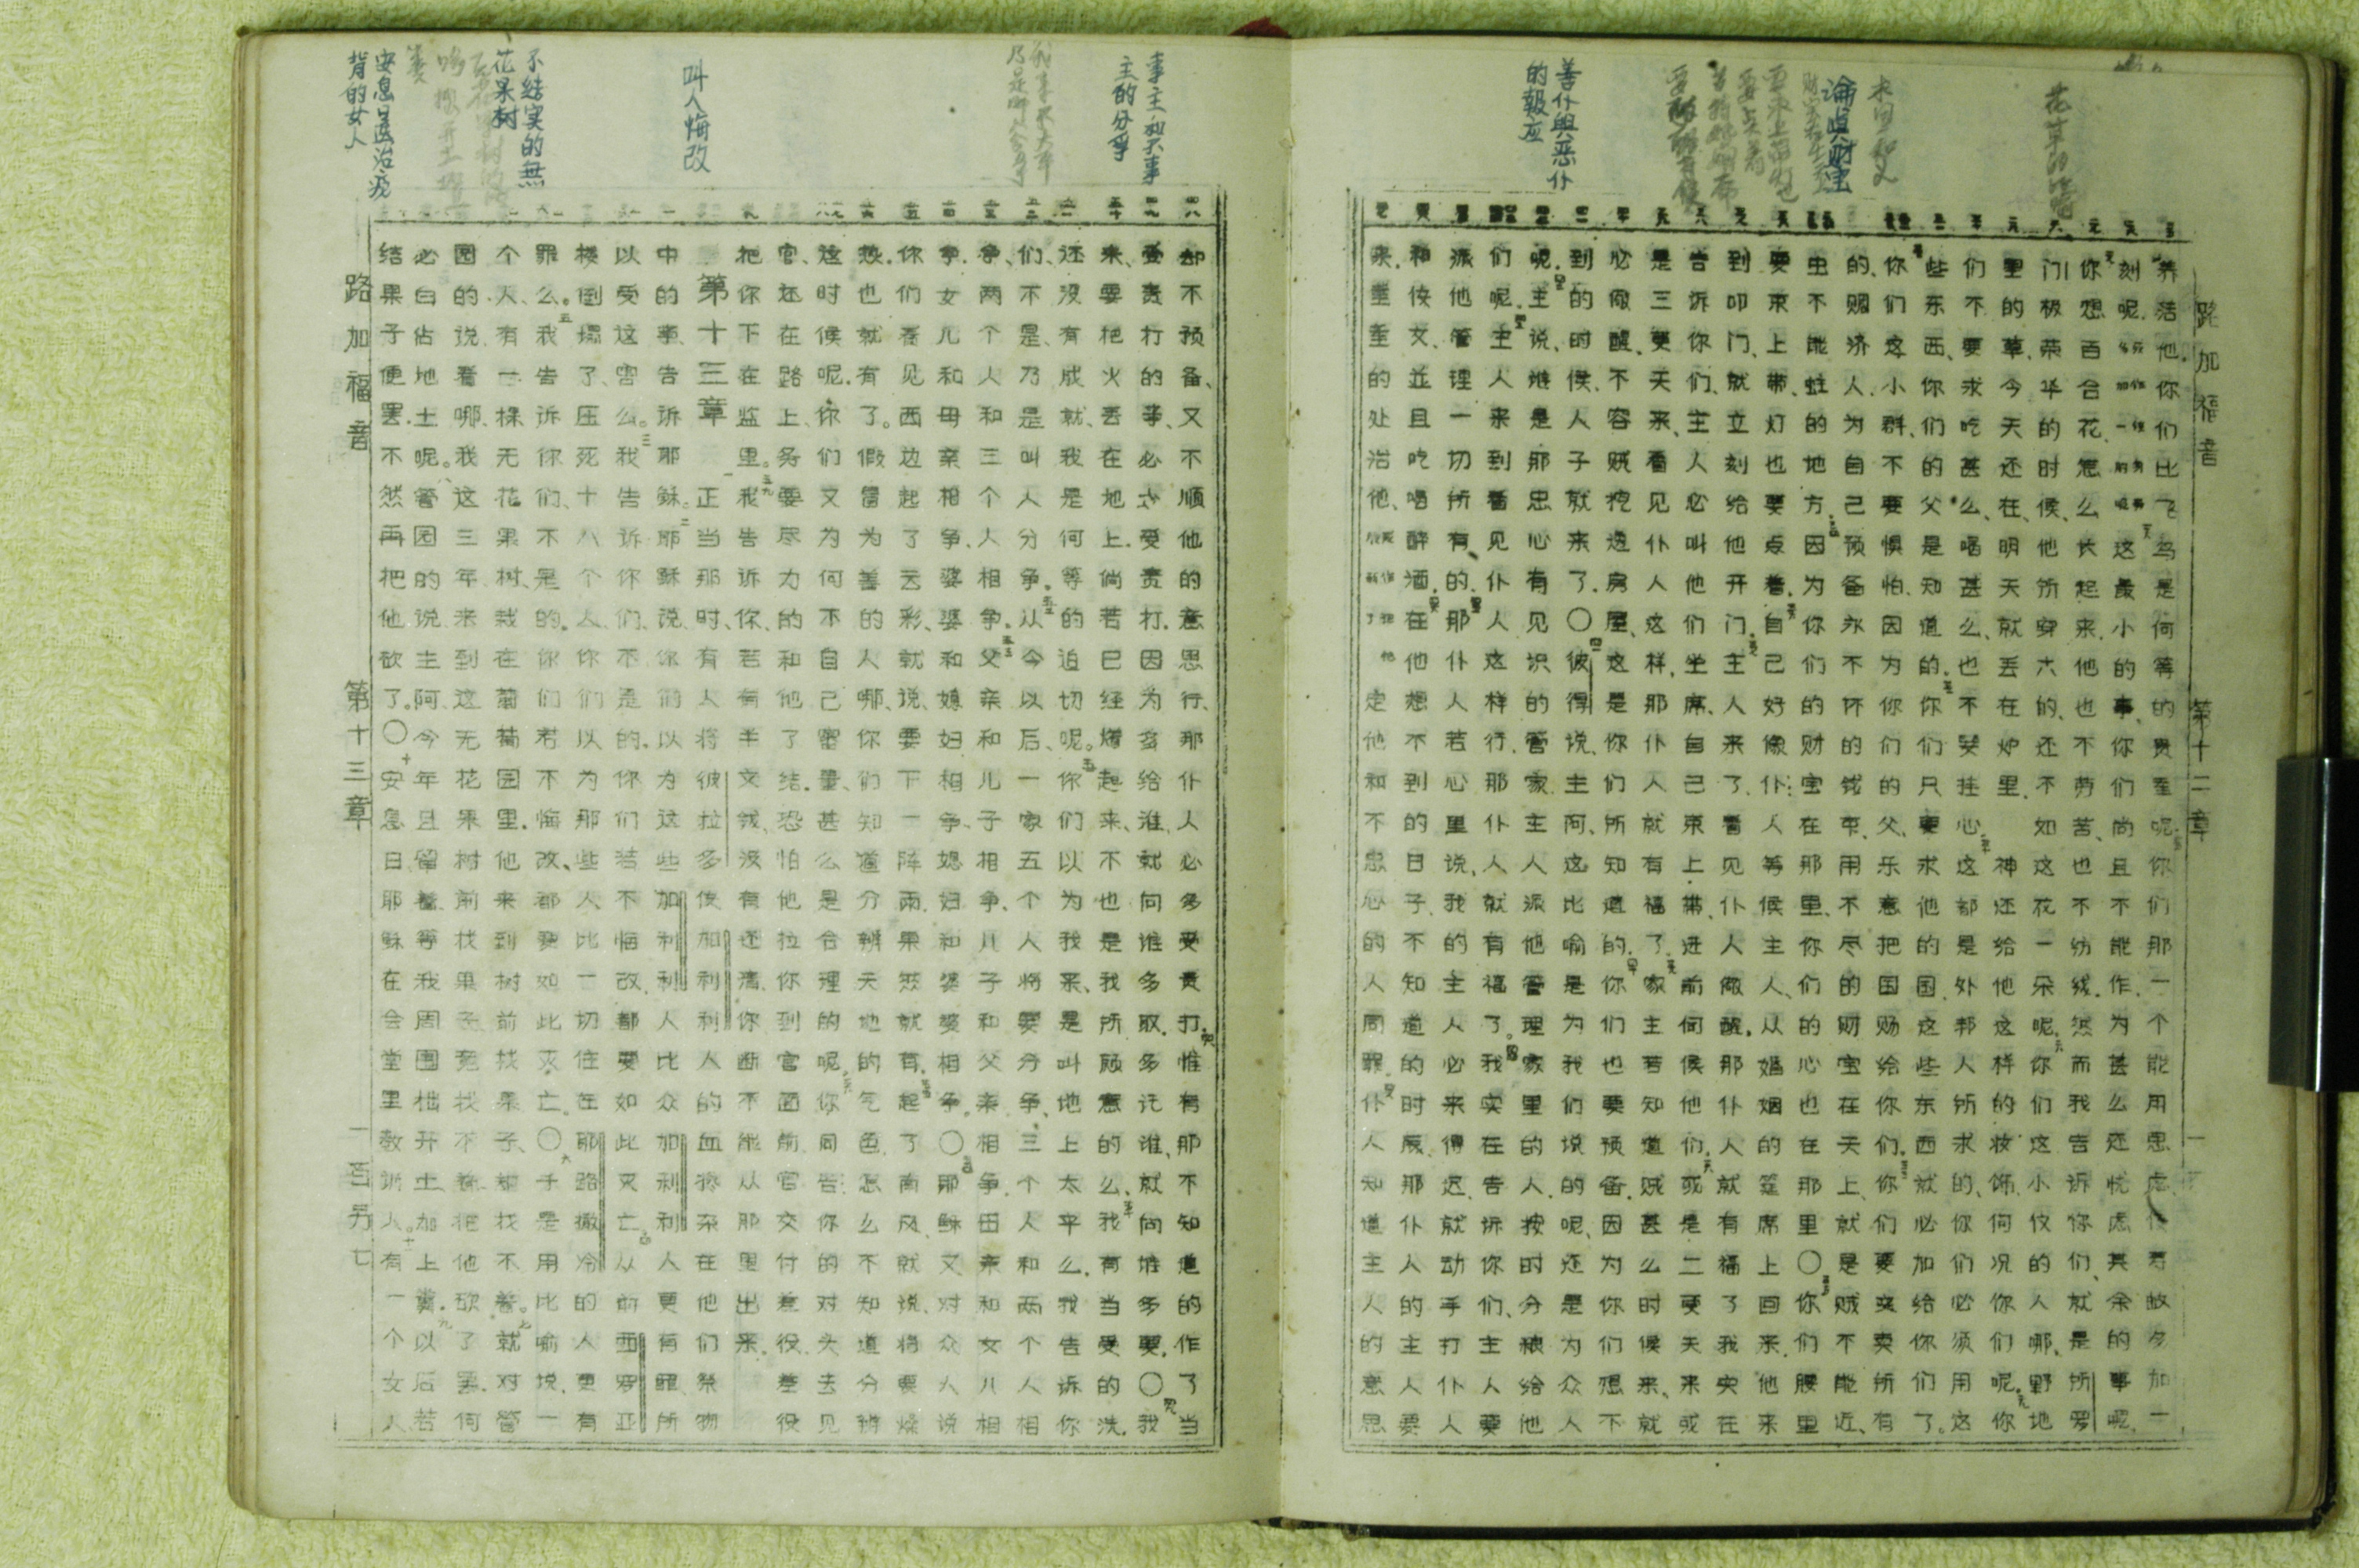 路加福音 第十二章
花草的比喻
论真财宝
善仆與恶仆
的報应
养活他.你们比飞鸟是何等的贵重呢.你们那一个能用思虑使寿故夕加一
刻呢.这最小的事、你们尚且不能作.为甚么还忧虑其余的事呢.
你想百合花怎么长起来.他也不劳苦、也不纺线.然而我告诉你们、就是所罗
门极荣华的时候、他所穿的、还不如这花一朵呢.你们这小的人哪.野地
里的草、今天还在、明天就丢在炉里.神还给他这样的妆饰、何况你们呢.你
们不要求吃甚么、喝甚么、也不要挂心.这都是外邦人所求的、你们必须用这
些东西、你们的父是知道的.你们只要求他的国.这些东西就必加给你们了.
你们这小群、不要惧怕、因为你们的父、乐意把国赐给你们.你们要变卖所有
的、赒济人、为自己预备永不坏的钱囊、用不尽的财宝在天上、就是贼不能近、
虫不能蛀的地方.因为你们的财宝在那里、你们的心也在那里〇你们腰里
要束上带、灯也要点着.自己好像仆人等候主人、从婚姻的筵席上回来.他来
到叩门、就立刻给他开门.主人来了、看见仆人儆醒、那仆人就有福了我实在
告诉你们、主人必叫他们坐席、自己束上带进前伺候他们.或是二更天来或
是三更天来、看见仆人这样、那仆人就有福了.家主若知道贼甚么时候来、就
必儆醒、不容贼挖透房屋、这是你们所知道的.你们也要预备.因为你们想不
到的时候、人子就来了〇彼得说、主阿、这比喻是为我们说的呢、还是为众人
呢.主说、谁是那忠心有见识的管家、主人派他管理家里的人.按时分粮给他
们呢.主人来到看见仆人这样行、那仆人就有福了.我实在告诉你们、主人要
派他管理一切所有的.那仆人若心里说、我的主人必来得迟、就动手打仆人
和使女、並且吃喝醉酒.在他想不到的日子、不知道的时辰、那仆人的主人要
来、重重的处治他、定他和不忠心的人同罪.仆人知道主人的意思
事主和不事
主的分爭
叫人悔改
不结实的無
花果树
安息日医治疲
背的女人
却不预备、又不顺他的意思行、那仆人必多受责打.惟有那不知道的作了当
受责打的事、必少受责打.因为多给谁、就向谁多取.多讬谁、就向谁多要.〇我
来、要把火丢在地上.倘若已经燃起来、不也是我所顾意的么、我有当受的洗.
还没有成就、我是何等的迫切呢.你们以为我来、是叫地上太平么.我告诉你
们、不是、乃是叫人分争.从今以后、一家五个人将要分争、三个人和两个人相
争、两个人和三个人相争.父亲和儿子相争、儿子和父亲相争.母亲和女儿相
争.女儿和母亲相争.婆婆和媳妇相争、媳妇和婆婆相争。〇耶稣又对众人说
你们看见西边起了云彩、就说、要下一阵雨、果然就有.起了南风、就说、将要燥
热.也就有了。假冒为善的人哪、你们知道分辨天地的气色、怎么不知道分辨
这时候呢.你们又为何不自己审量、甚么是合理的呢.你同告你的对头去见
官、还在路上、务要尽力的和他了结.恐怕他拉你到官面前官交付差役、差役
把你下在监里。我告诉你、若有半文钱没有还清、你断不能从那里出来.
第十三章 正当那时、有人将彼拉多使加利利人的血搀杂在他们祭物
中的事、告诉耶稣。耶稣说、你们以为这些加利利人比众加利利人更有罪、所
以受这害么。我告诉你们、不是的.你们若不悔改、都要如此灭亡.从前西罗亚
楼倒塌了、压死十八个人、你们以为那些人比一切住在耶路撒冷的人更有
罪么。我告诉你们、不是的.你们若不悔改、都要如此灭亡。〇于是用比喻说、一
个人、有一棵无花果树、栽在葡萄园里.他来到树前找果子、却找不着。就对管
园的说、看哪、我这三年来到这无花果树前找果子竟找不着、把他砍了罢.何
必白占地土呢。管园的说、主阿、今年且留着、等我周围掘开土加上粪.以后若
结果子便罢.不然再把他砍了。〇安息日耶稣在会堂里教训人.有一个女人
路加福音 第十三章 一百另七